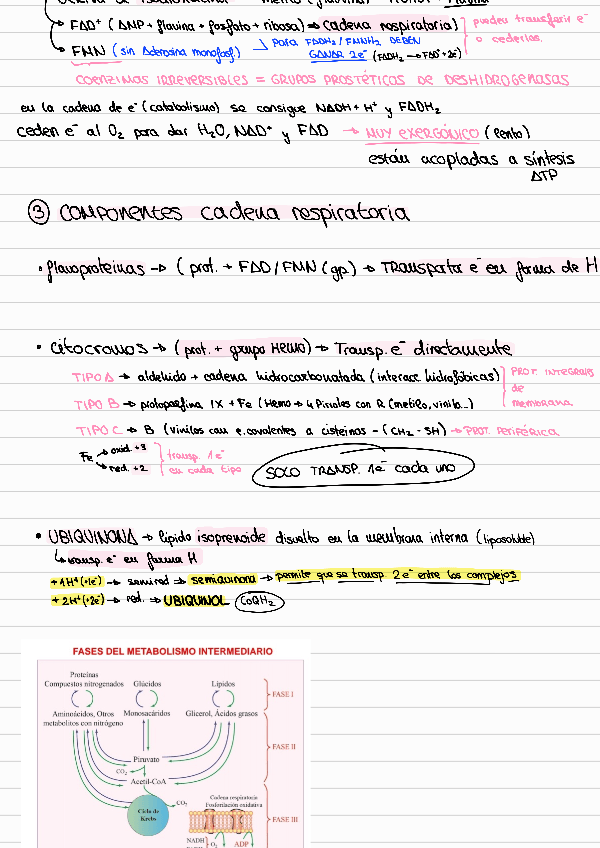 FAD⁺ (AMP + flavina + fosfato + ribosa) → cadena respiratoria) pueden transferir e⁻
o cederlos.
FMN (sin Adenosina monofosf.) → para FADH₂/FMNH₂ DEBEN
GANAR 2e⁻ (FADH₂ → FAD⁺+2e⁻)
COENZIMAS IRREVERSIBLES = GRUPOS PROSTÉTICOS DE DESHIDROGENASAS
en la cadena de e⁻ (catabolismo) se consigue NADH + H⁺ y FADH₂
ceden e⁻ al O₂ para dar H₂O, NAD⁺ y FAD → MUY EXERGÓNICO (lento)
están acopladas a síntesis
ATP
③ COMPONENTES cadena respiratoria
• flavoproteínas → (prot. + FAD/FMN (gp.) → Transporta e⁻ en forma de H
• citocromos → (prot. + grupo HEMO) → Transp. e⁻ directamente
TIPO A → aldehído + cadena hidrocarbonatada (interacc. hidrofóbicas) PROT. INTEGRALES
de
TIPO B → protoporfina IX + Fe (Hemo → 4 Pirroles con R (metilo, vinilo...) membrana
TIPO C → B (vinilos con e. covalentes a cisteínas - (CH₂ - SH) → PROT. PERIFÉRICA
Fe → oxid. +3
→ red. +2
transp. 1e⁻
en cada tipo
SOLO TRANSP. 1e⁻ cada uno
• UBIQUINONA → lípido isoprenoide disuelto en la membrana interna (liposoluble)
↳ transp. e⁻ en forma H
+1H⁺(+1e⁻) → semired → semiquinona → permite que se transp. 2e⁻ entre los complejos
+2H⁺(+2e⁻) → red. → UBIQUINOL (CoQH₂)
FASES DEL METABOLISMO INTERMEDIARIO
Proteínas
Compuestos nitrogenados Glúcidos Lípidos
FASE I
Aminoácidos, Otros
metabolitos con nitrógeno Monosacáridos Glicerol, Ácidos grasos
FASE II
Piruvato
CO₂
Acetil-CoA
Ciclo de
Krebs
CO₂
Cadena respiratoria
Fosforilación oxidativa
FASE III
NADH O₂ ADP